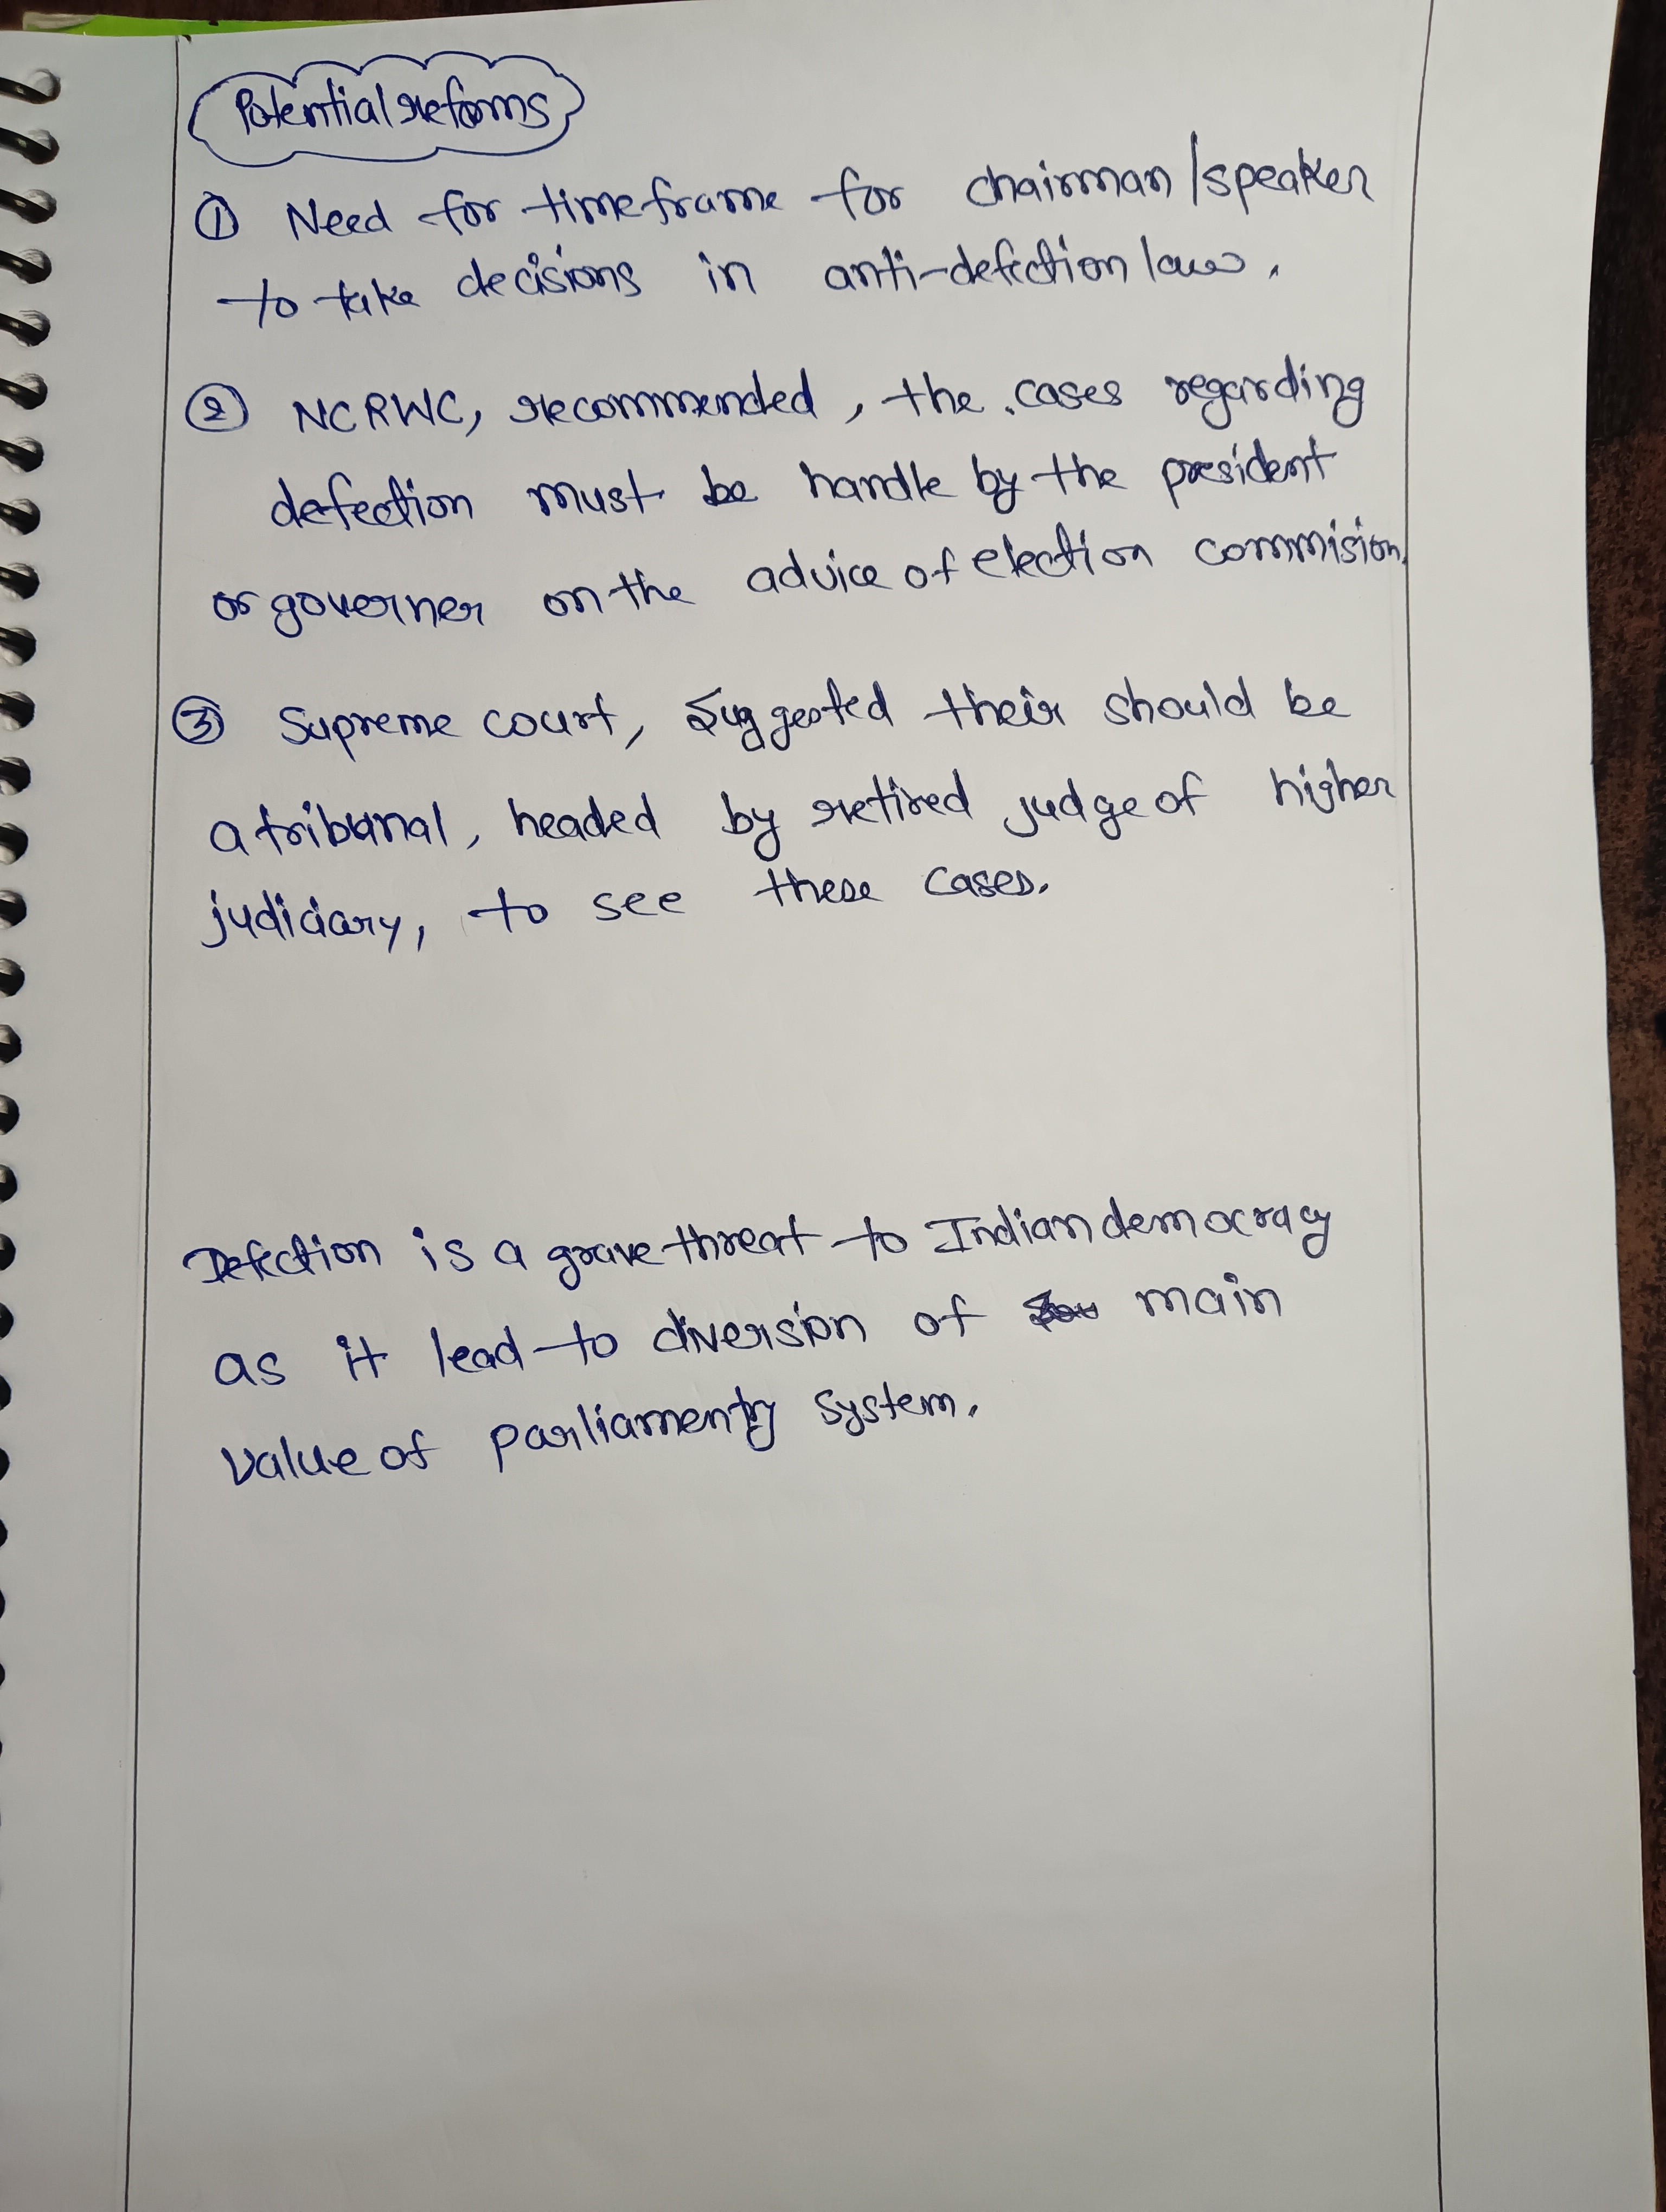 Potential reforms
① Need for timeframe for chairman/speaker
to take decisions in anti-defection law.
② NCRWC, recommended, the cases regarding
defection must be handle by the president
or governer on the advice of election commision.
③ Supreme court, suggested their should be
a tribunal, headed by retired judge of higher
judiciary, to see these cases.
Defection is a grave threat to Indian democracy
as it lead to diversion of main
value of parliamentry system.